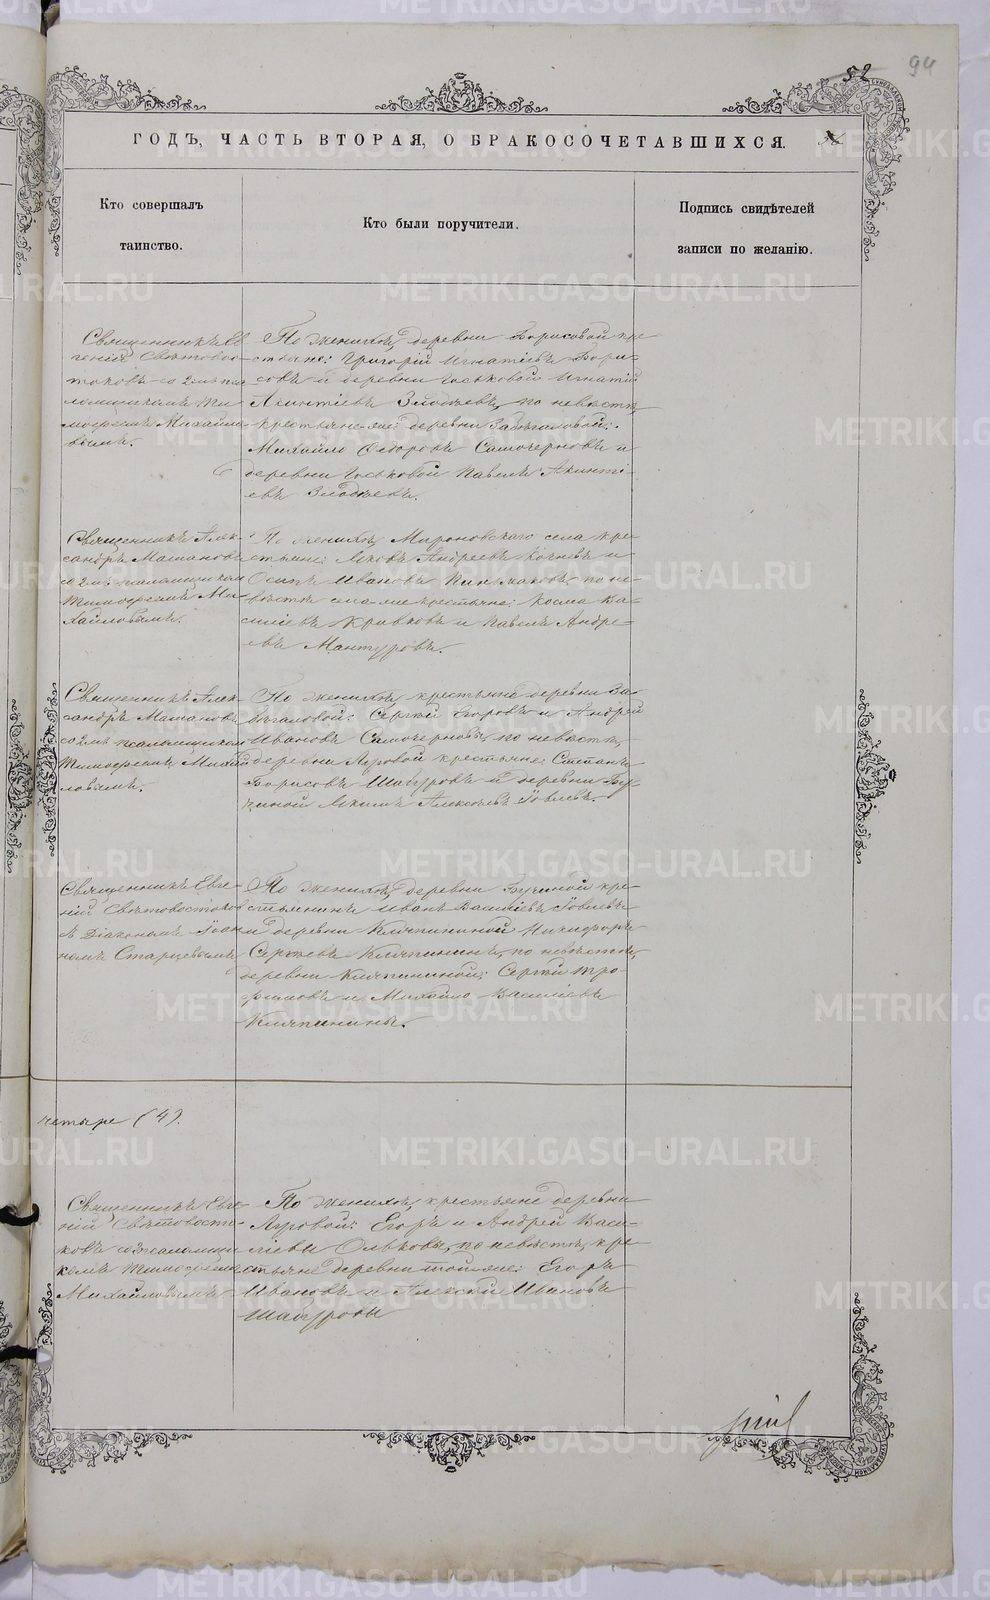 94
52
ГОДЪ, ЧАСТЬ ВТОРАЯ, О БРАКОСОЧЕТАВШИХСЯ.
Кто совершалъ
таинство.
Кто были поручители.
Подпись свидѣтелей
записи по желанію.
Священникъ Ев-
геній Свѣтовос-
токовъ со 2мъ пса-
ломщикомъ Ти-
мофеемъ Михайло-
вымъ.
По женихѣ, деревни Борисовой кре-
стьяне: Григорій Игнатіевъ Бори-
совъ и деревни Игнатій
Акинтіевъ Злобаевъ, по невѣстѣ,
крестьяне деревни
Михайло Ѳедоровъ Самочерновъ и
деревни Павелъ Акинті-
евъ
Священникъ Алек-
сандръ Мамановъ
со 2мъ псаломщикомъ
Тимофеемъ Ми-
хайловымъ.
По женихѣ Мироновскаго села кре-
стьяне: Яковъ Андреевъ и
Осипъ Ивановъ по не-
вѣстѣ села крестьяне: Косма Ва-
силіевъ Кривковъ и Павелъ Андре-
евъ Мантуровъ.
Священникъ Алек-
сандръ Мамановъ
со 2мъ псаломщикомъ
Тимофеемъ Михай-
ловымъ.
По женихѣ, крестьяне деревни За-
бѣгаловой: Сергѣй Егоровъ и Андрей
Ивановъ Самочерновы, по невѣстѣ,
деревни Луговой крестьяне: Степанъ
Борисовъ Шабуровъ и деревни Бу-
чиной Акимъ Алексѣевъ Іовлевъ.
Священникъ Евге-
ній Свѣтовостоковъ
съ Діакономъ Іоан-
номъ Старцевымъ
По женихѣ, деревни Бучиной кре-
стьянинъ Иванъ Василіевъ Іовлевъ
и деревни Кляпининой Никифоръ
Сергѣевъ Кляпининъ, по невѣстѣ,
деревни Кляпининой: Сергѣй Тро-
фимовъ и Михайло Василіевъ
Кляпинины.
четыре (4).
Священникъ Евге-
ній Свѣтовосто-
ковъ со псаломщи-
комъ Тимофеемъ
Михайловымъ
По женихѣ, крестьяне деревни
Луговой: Егоръ и Андрей Васи-
ліевы Ольковы, по невѣстѣ, кре-
стьяне деревни тойже: Егоръ
Ивановъ и Алексѣй Ивановъ
Шабуровы
METRIKI.GASO-URAL.RU